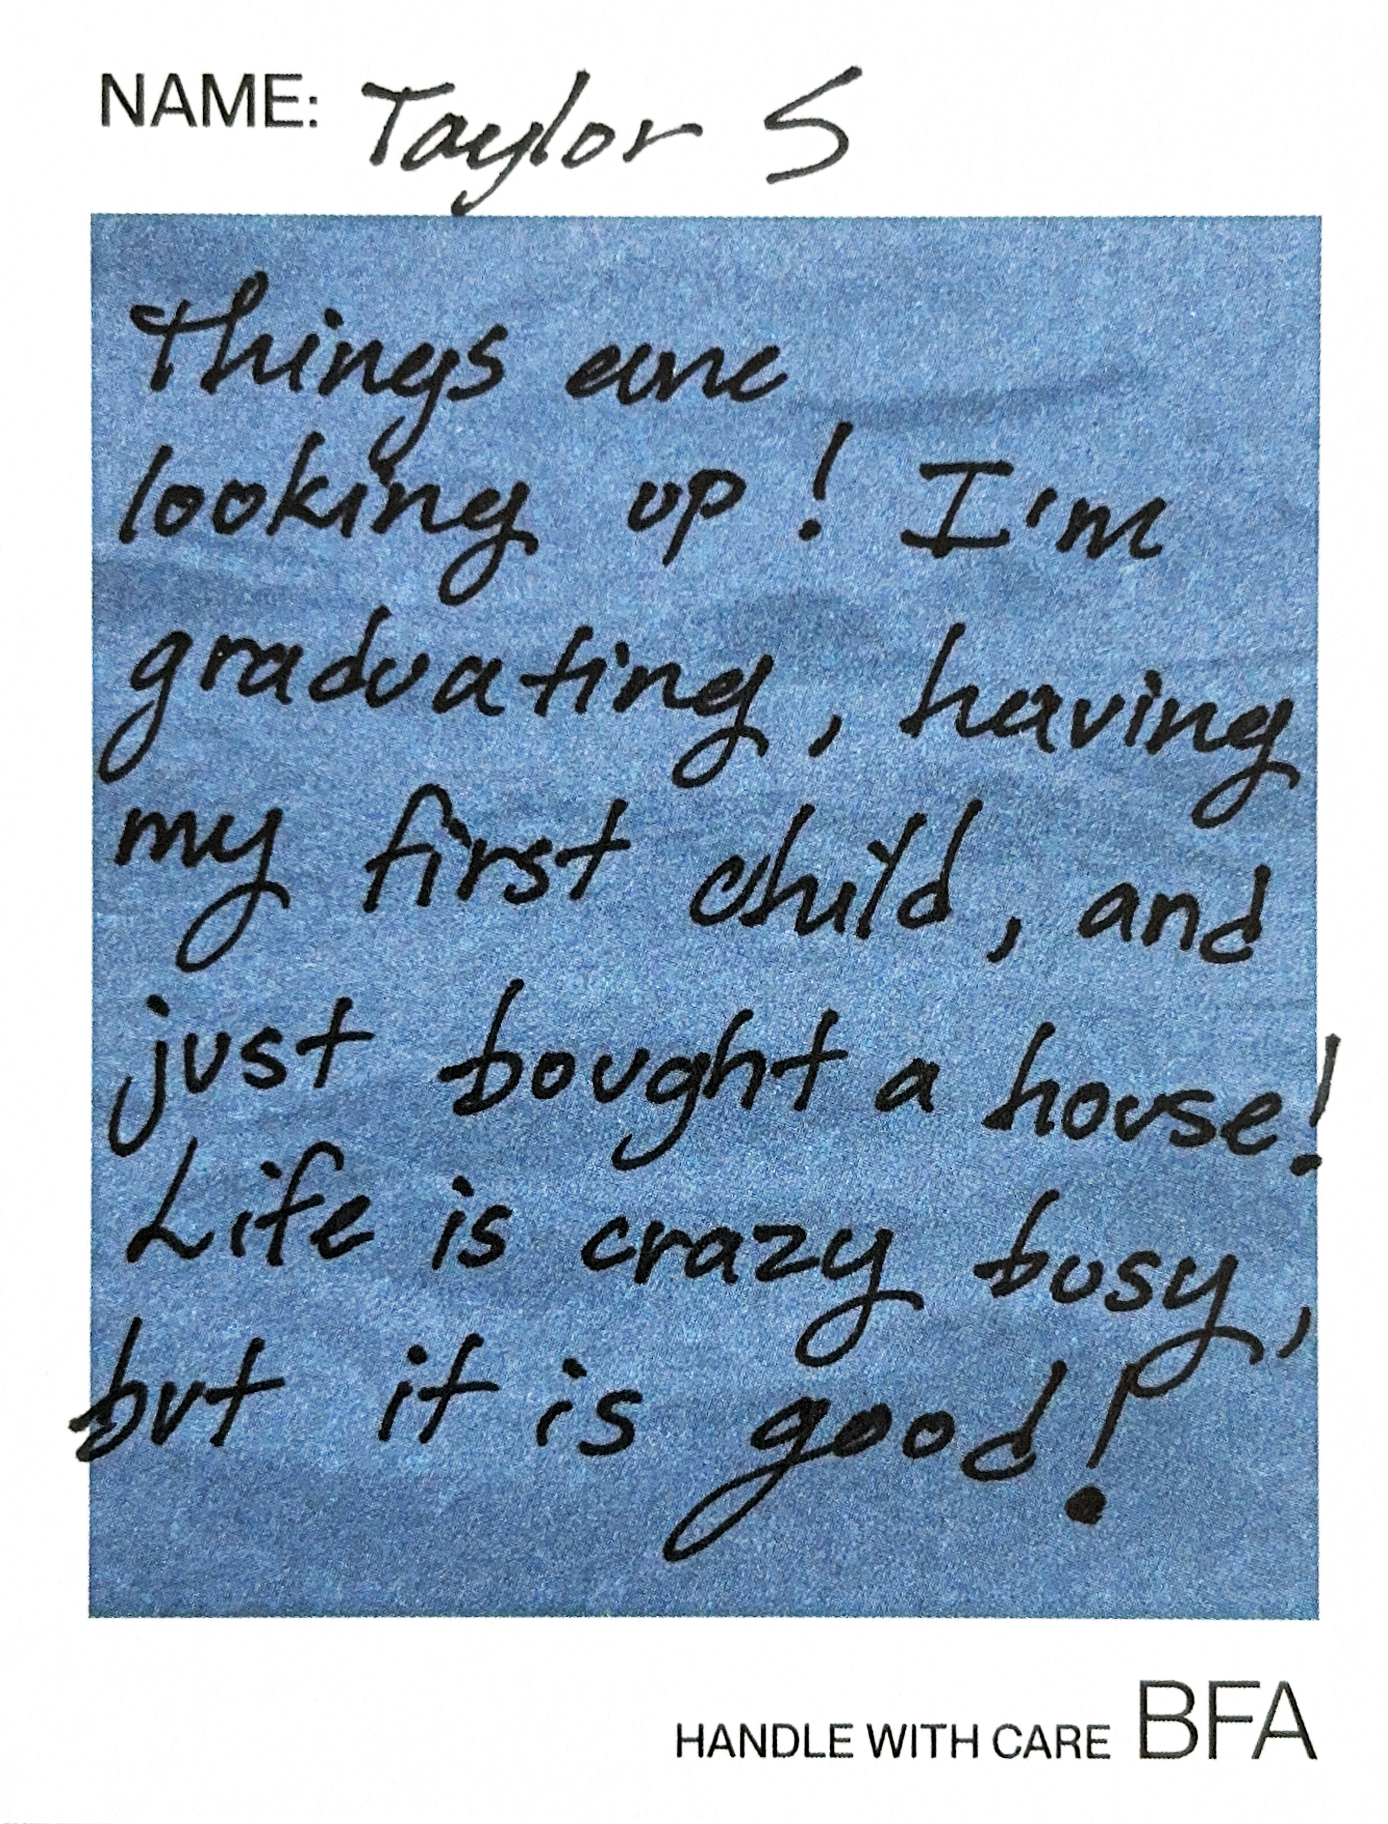 NAME: Taylor S
Things are
looking up! I'm
graduating, having
my first child, and
just bought a house!
Life is crazy busy,
but it is good!
HANDLE WITH CARE BFA